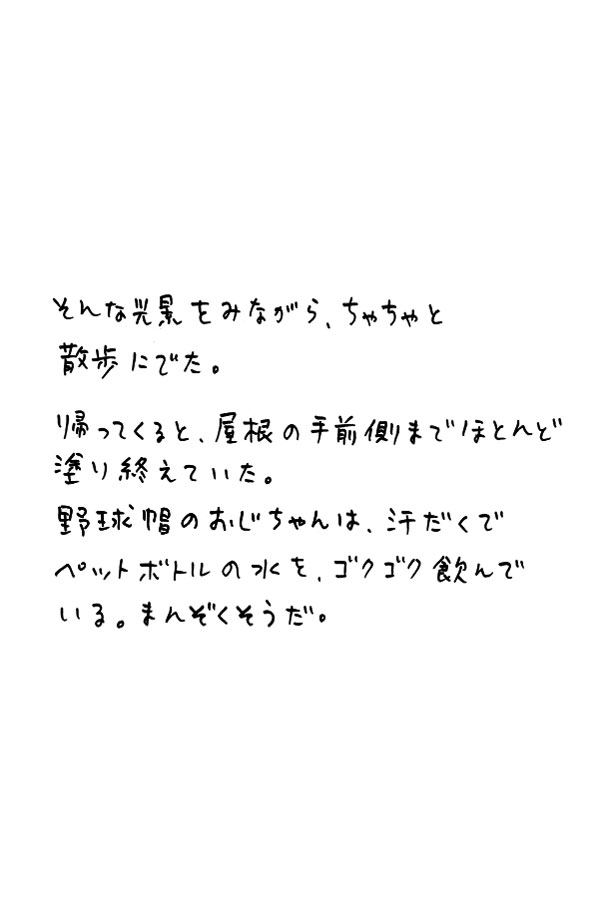 そんな光景をみながら、ちゃちゃと
散歩にでた。
帰ってくると、屋根の手前側までほとんど
塗り終えていた。
野球帽のおじちゃんは、汗だくで
ペットボトルの水を、ゴクゴク飲んで
いる。まんぞくそうだ。